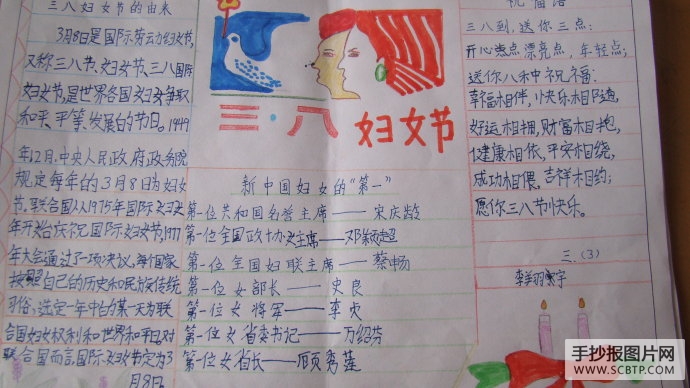 三八妇女节的由来
3月8日是国际劳动妇女节,
又称三八节、妇女节、三八国际
妇女节,是世界各国妇女争取
和平、平等、发展的节日。1949
年12月,中央人民政府政务院
规定每年的3月8日为妇女
节。联合国从1975年国际妇女
年开始庆祝国际妇女节,1977
年大会通过了一项决议,每个国家
按照自己的历史和民族传统
习俗,选定一年中的某一天为联
合国妇女权利和世界和平日,对
联合国而言国际妇女节定为3
月8日
三·八
妇女节
新中国妇女的“第一”
第一位共和国名誉主席——宋庆龄
第一位全国政协女主席——邓颖超
第一位全国妇联主席——蔡畅
第一位女部长——史良
第一位女将军——李贞
第一位女省委书记——万绍芬
第一位女省长——顾秀莲
祝福语
三八到,送你三点:
开心点漂亮点,年轻点;
送你八种祝福:
幸福相伴,快乐相随,
好运相拥,财富相抱,
健康相依,平安相绕,
成功相偎,吉祥相约;
愿你三八节快乐。
三.(3)
手抄报图片网
WWW.SCBTP.COM